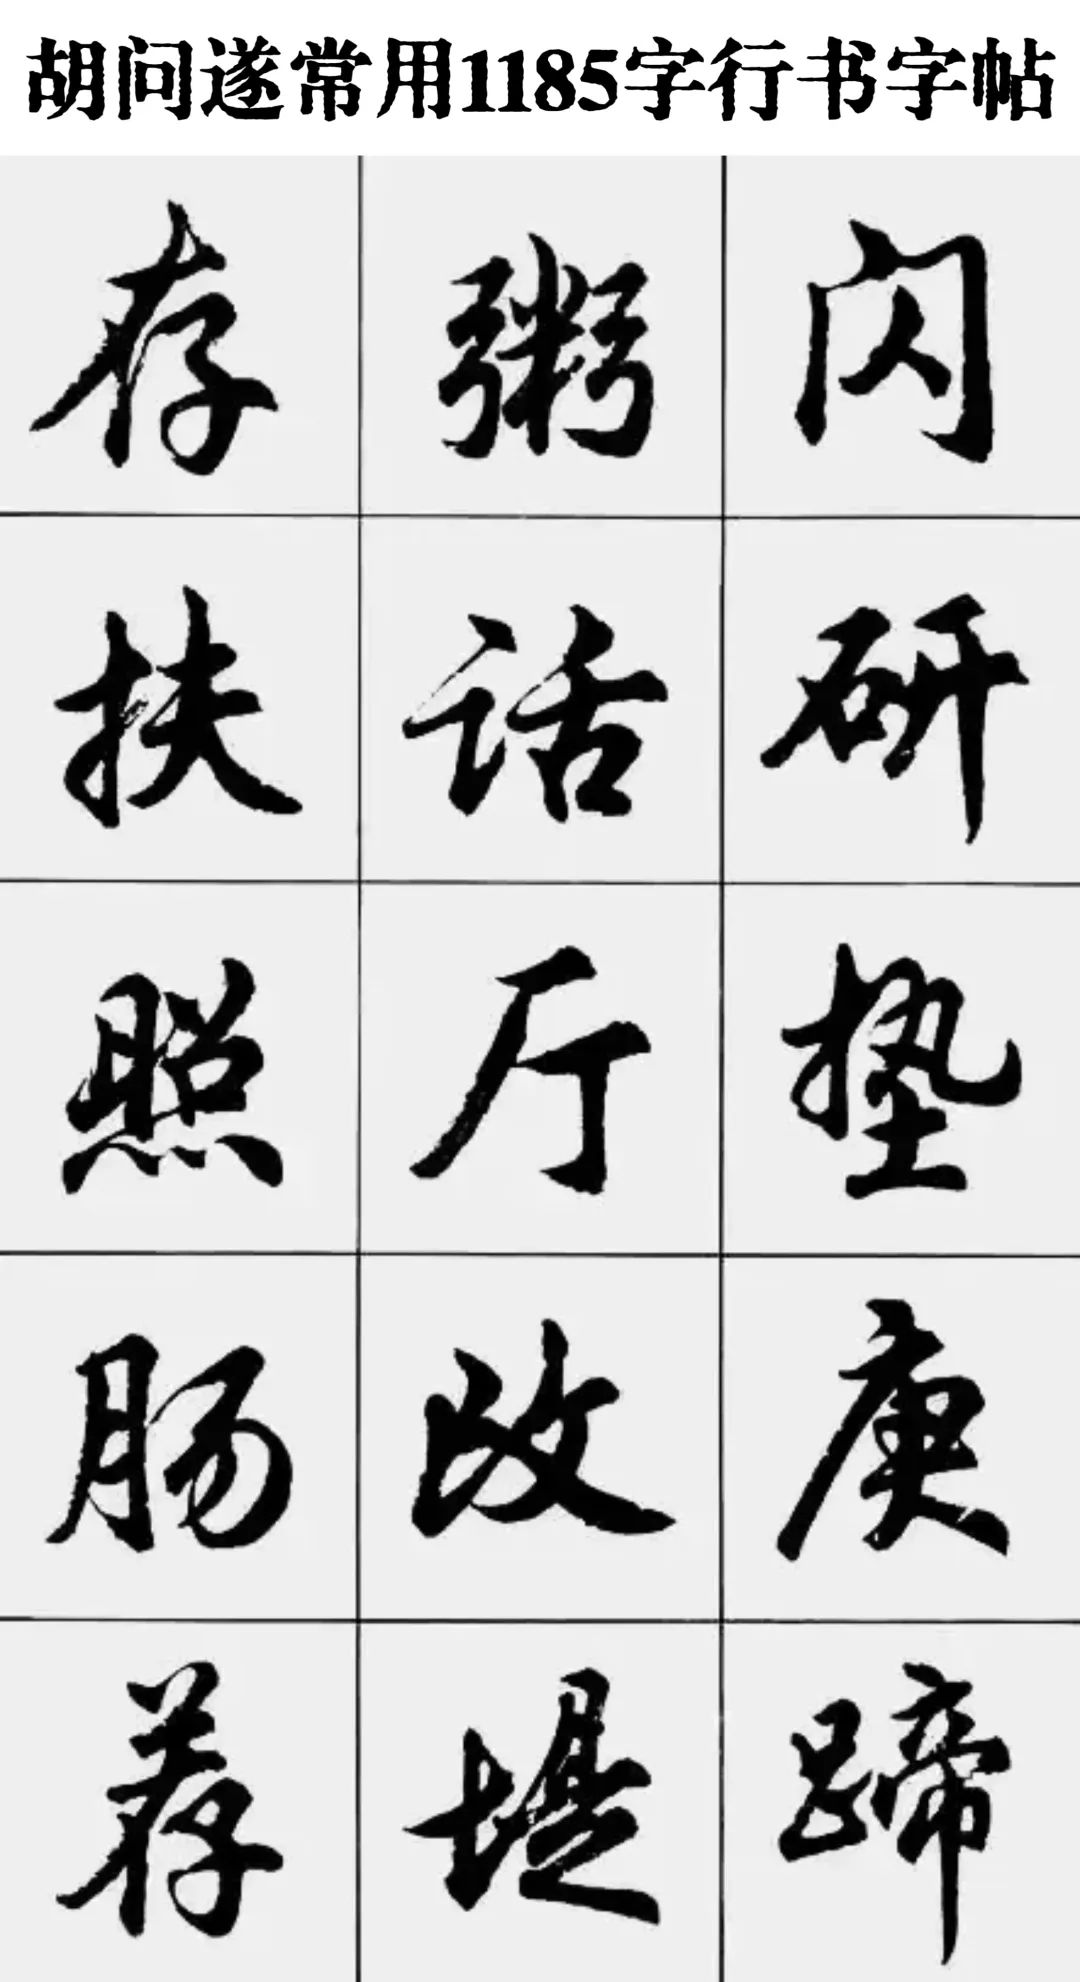 胡问遂常用1185字行书字帖
存 粥 闪
扶 话 研
照 厅 垫
肠 改 庚
荐 堤 蹄